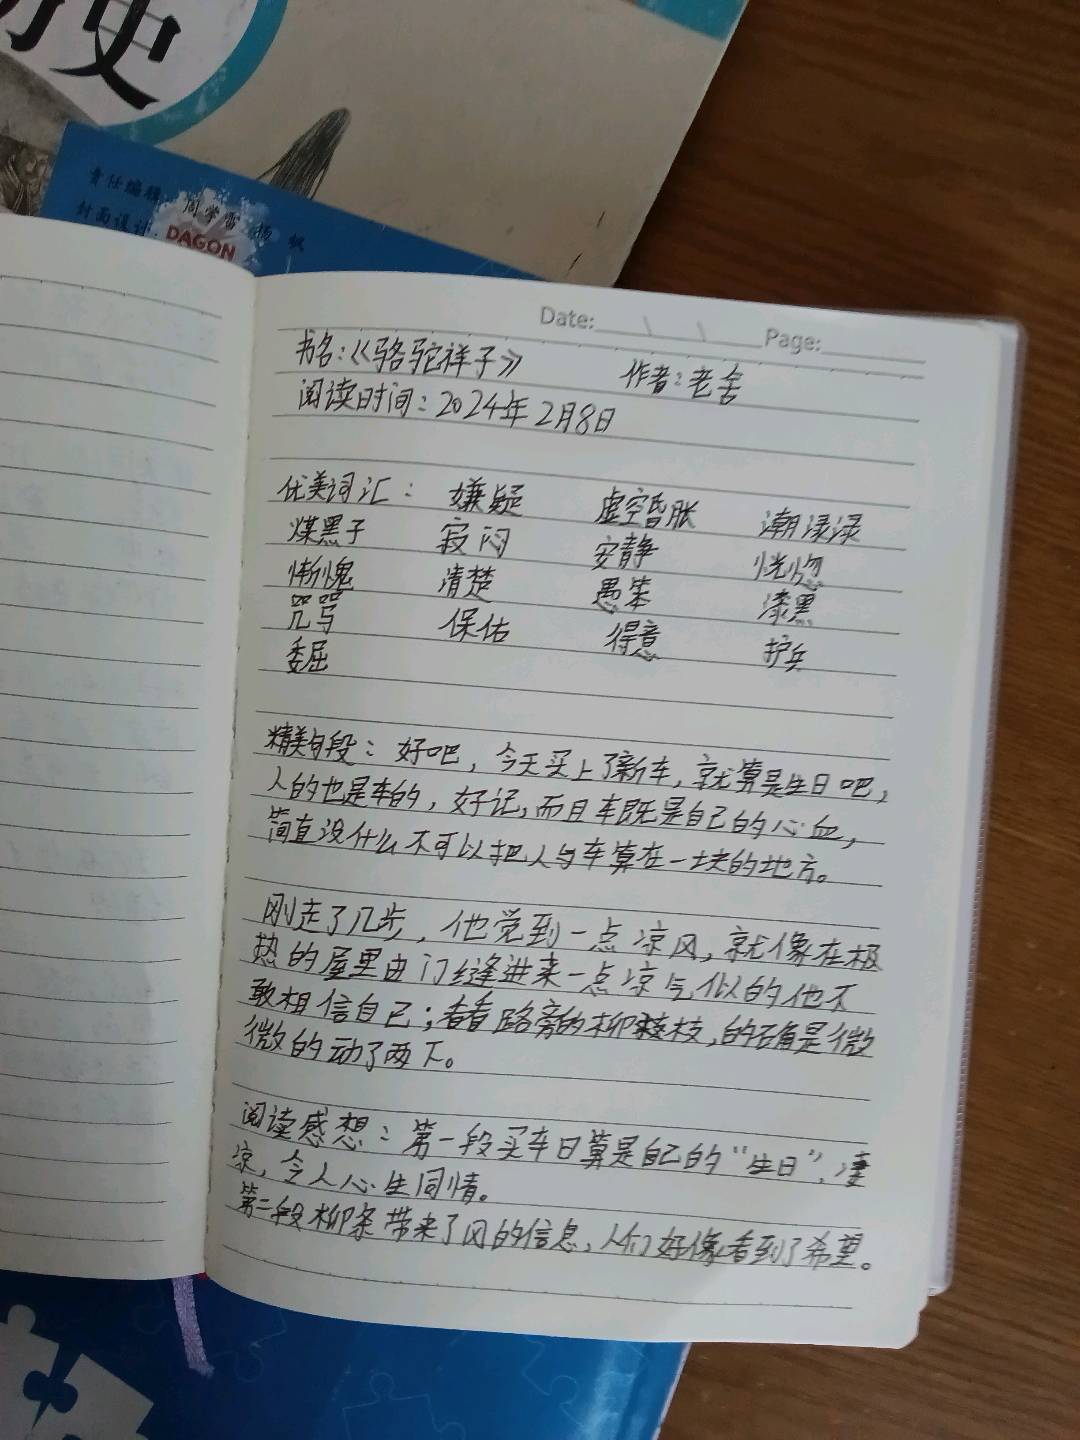 历史
责任编辑：周学雷 杨 帆
封面设计：
DAGON
Date: Page:
书名：《骆驼祥子》 作者：老舍
阅读时间：2024年2月8日
优美词汇： 嫌疑 虚空昏胀 潮渌渌
煤黑子 寂闷 安静 恍惚
惭愧 清楚 愚笨 漆黑
咒骂 保佑 得意 护兵
委屈
精美句段：好吧，今天买上了新车，就算是生日吧，
人的也是车的，好记，而且车既是自己的心血，
简直没什么不可以把人与车算在一块的地方。
刚走了几步，他觉到一点凉风，就像在极
热的屋里由门缝进来一点凉气似的他不
敢相信自己；看看路旁的柳枝，的确是微
微的动了两下。
阅读感想：第一段买车日算是自己的“生日”，凄
凉，令人心生同情。
第二段柳条带来了风的信息，人们好像看到了希望。